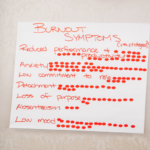 BURNOUT
SYMPTOMS
Reduced performance +
Anxiety
Low commitment to role
Detachment
Loss of purpose
Absenteeism
Low mood